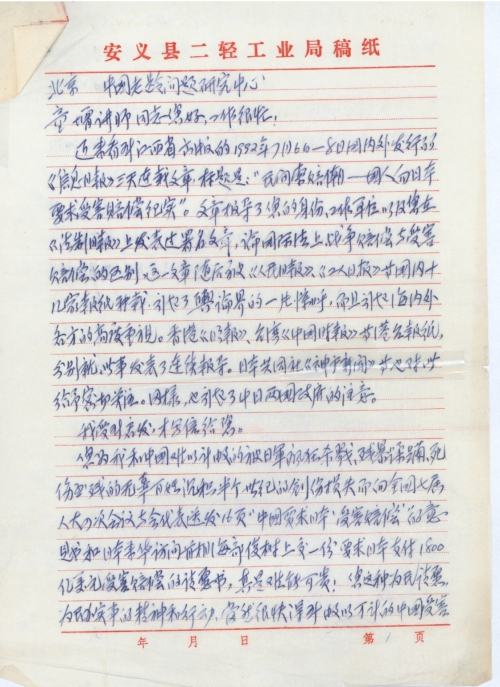 安义县二轻工业局稿纸
北京 中国老龄问题研究中心
童增讲师同志您好,工作很忙!
近来看到江西省出版的1992年7月6日—8日国内外发行的
《信息日报》三天连载文章标题是:“民间索赔潮——国人向日本
要求受害赔偿纪实”。文章报导了您的身份、工作单位以及您在
《法制日报》上发表过署名文章,论国际法上战争赔偿与受害
赔偿的区别。这一文章随后被《人民日报》、《工人日报》等国内十
几家报纸转载,引起了舆论界的一片 ,而且引起海内外
各方的高度重视。香港《明报》、台湾《中国时报》等港台报纸,
分别就此事发表了连续报导。日本共同社《神户新闻》等也对此
给予密切关注。同样,也引起了中日两国政府的注意。
我受到启发,才写信给您。
您为我和中国难以计数的被日军疯狂杀戮、残暴 、死
伤至残的无辜百姓沉积半个世纪的创伤损失而向全国七届
人大 次会议与会代表递发16页“中国要求日本‘受害赔偿’的意
见书和日本来华访问首相海部俊树上交一份“要求日本支付1800
亿美元受害赔偿的请愿书,真是难能可贵!您这种为民请愿,
为民办实事的精神和行动,当然很快得到数以万计的中国受害
年 月 日 第 1 页